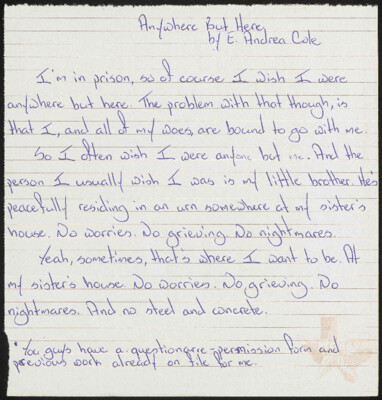 Anywhere But Here
by E. Andrea Cole
I'm in prison, so of course I wish I were
anywhere but here. The problem with that though, is
that I, and all of my woes, are bound to go with me.
So I often wish I were anyone but me. And the
person I usually wish I was is my little brother. He's
peacefully residing in an urn somewhere at my sister's
house. No worries. No grieving. No nightmares.
Yeah, sometimes, that's where I want to be. At
my sister's house. No worries. No grieving. No
nightmares. And no steel and concrete.
*You guys have a questionarre-permission form and
previous work already on file for me.